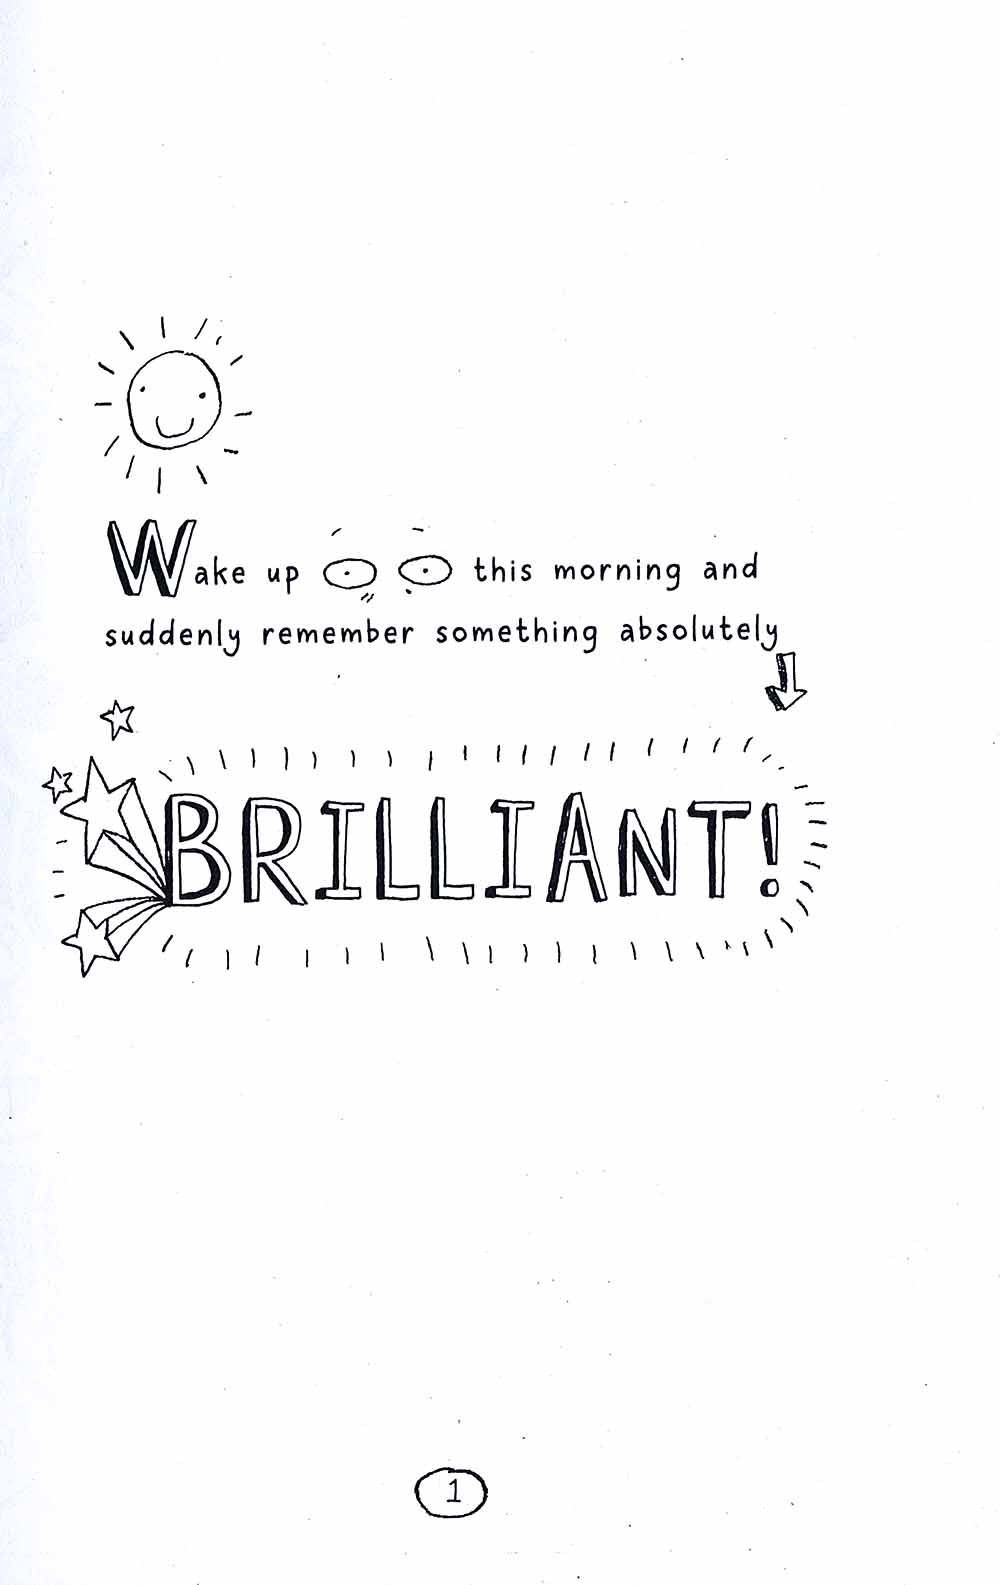 Wake up this morning and
suddenly remember something absolutely
BRILLIANT!
1